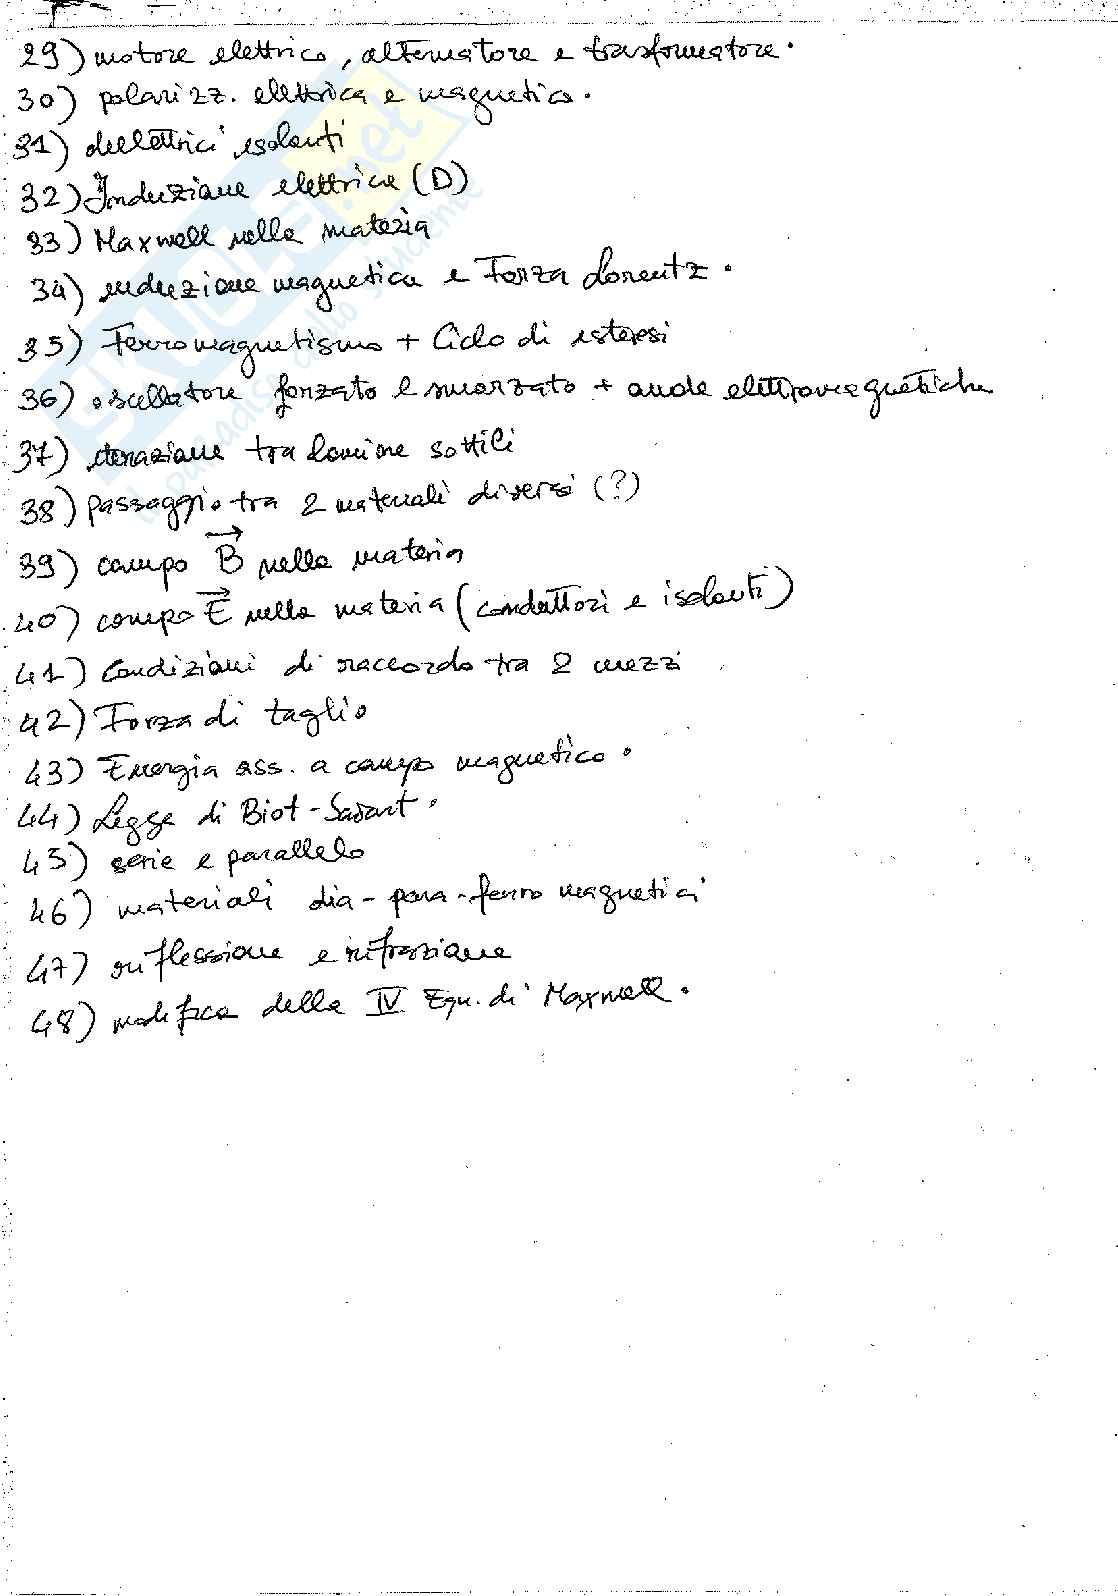 29) motore elettrico, alternatore e trasformatore.
30) polarizz. elettrica e magnetica.
31) dielettrici isolanti
32) Induzione elettrica (D)
33) Maxwell nella materia
34) induzione magnetica e Forza Lorentz.
35) Ferromagnetismo + Ciclo di isteresi
36) oscillatore forzato e smorzato + onde elettromagnetiche
37) iterazione tra lamine sottili
38) passaggio tra 2 materiali diversi (?)
39) campo B nella materia
40) campo E nella materia (conduttori e isolanti)
41) Condizioni di raccordo tra 2 mezzi
42) Forza di taglio
43) Energia ass. a campo magnetico.
44) Legge di Biot-Savart.
45) serie e parallelo
46) materiali dia-para-ferro magnetici
47) riflessione e rifrazione
48) modifica della IV Equ. di Maxwell.